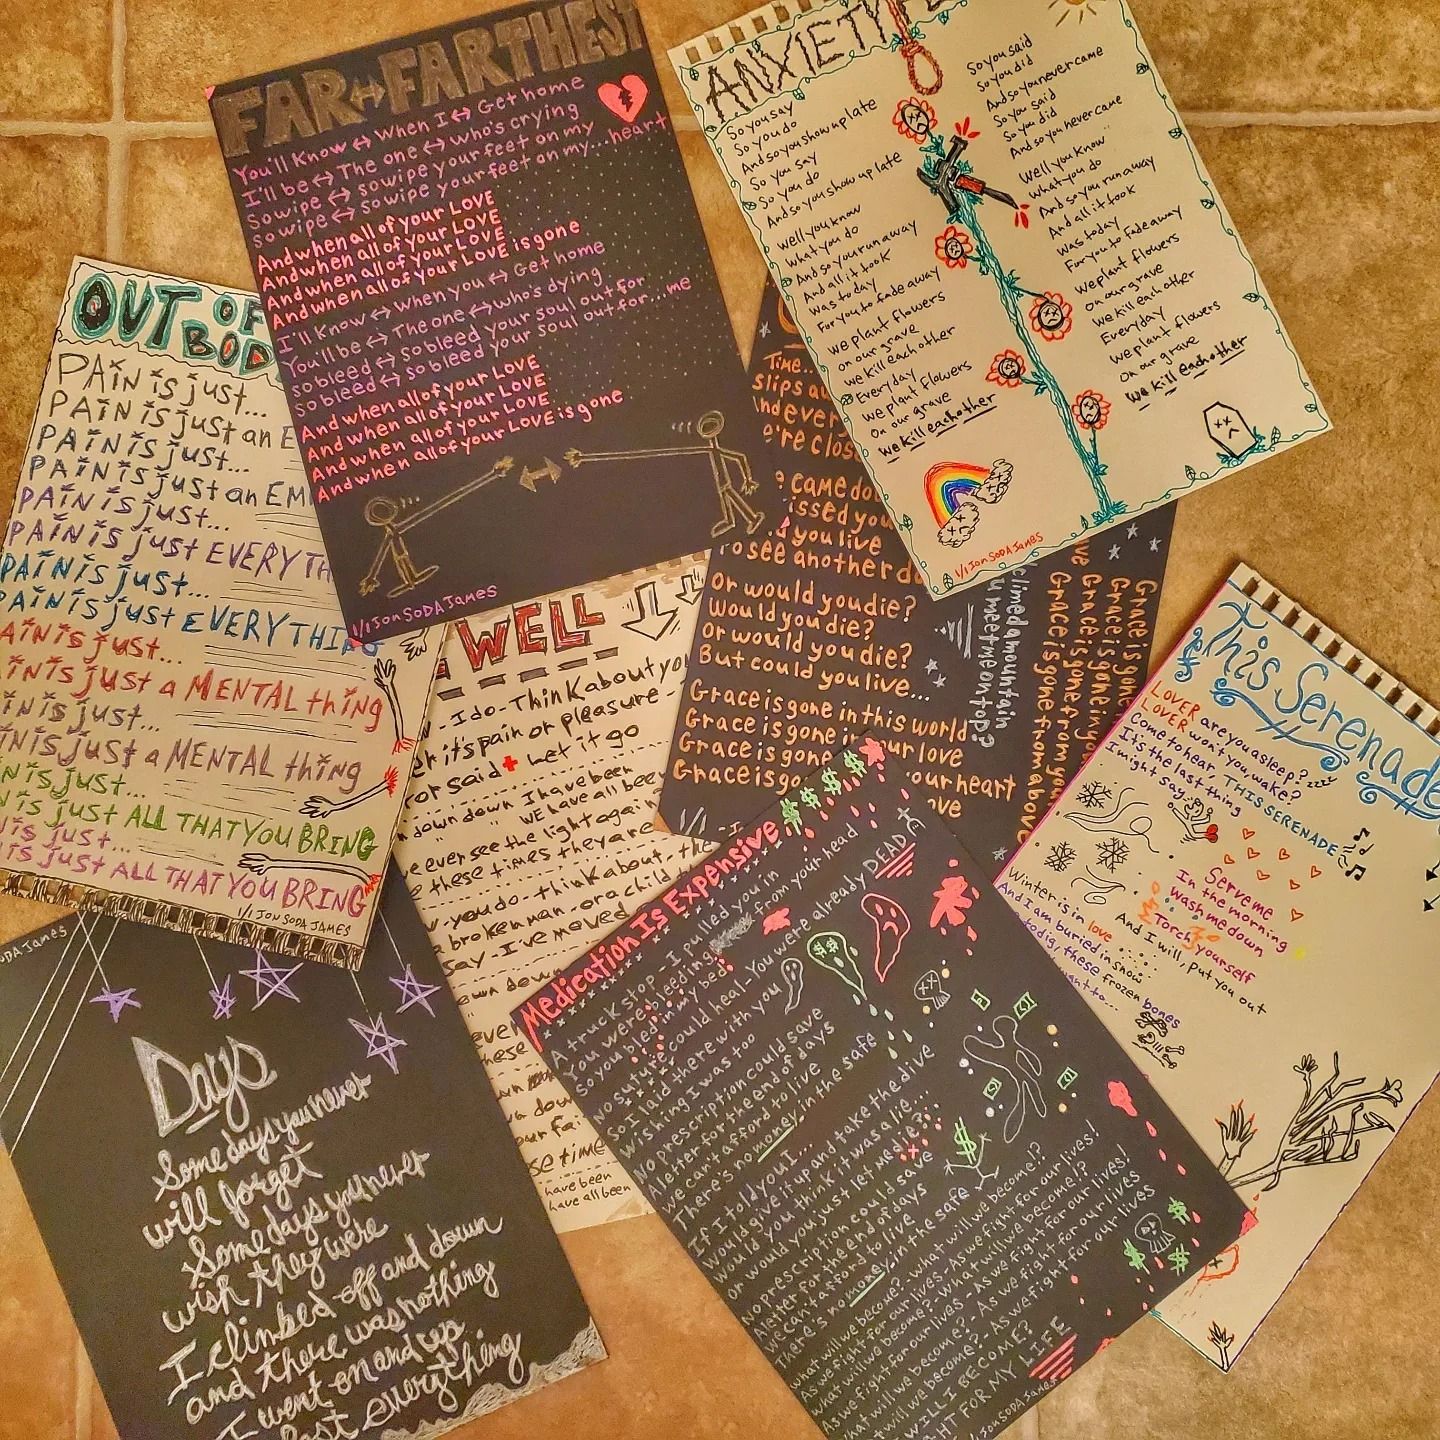 FAR ↔ FARTHEST
You'll Know ↔ When I ↔ Get home
I'll be ↔ The one ↔ who's crying
So wipe ↔ so wipe your feet on my
So wipe ↔ so wipe your feet on my...heart
And when all of your LOVE
And when all of your LOVE
And when all of your LOVE
And when all of your LOVE is gone
I'll Know ↔ When you ↔ Get home
You'll be ↔ The one ↔ who's dying
So bleed ↔ so bleed your soul out for
So bleed ↔ so bleed your soul out for...me
And when all of your LOVE
And when all of your LOVE
And when all of your LOVE
And when all of your LOVE is gone
1/1 Jon SODA James
ANXIETY
So you say
So you do
And so you show up late
So you say
So you do
And so you show up late
Well you know
What you do
And so you run away
And all it took
Was today
For you to fade away
We plant flowers
On our grave
We kill each other
Everyday
We plant flowers
On our grave
We kill each other
So you said
So you did
And so you never came
So you said
So you did
And so you never came
Well you know
What you do
And so you run away
And all it took
Was today
For you to fade away
We plant flowers
On our grave
We kill each other
Everyday
We plant flowers
On our grave
We kill each other
1/1 Jon SODA James
OUT OF
BOD
PAIN is just...
PAIN is just an E
PAIN is just...
PAIN is just an EM
PAIN is just...
PAIN is just EVERYTH
PAIN is just...
PAIN is just EVERYTHING
AIN is just...
AIN is just a MENTAL thing
N is just...
IN is just a MENTAL thing
N is just...
N is just ALL THAT YOU BRING
N is just...
is just ALL THAT YOU BRING
1/1 JON SODA JAMES
WELL
I do - Think about you
it's pain or pleasure -
or said + Let it go
down down I have been
" WE have all been
ever see the light again
these times they are
you do - think about - the
broken man - or a child
say - I've moved
down
ever
these
our fai
se time
have been
have all been
Time...
slips a
nd ever
e're clos
came do
issed you
you live
To see another da
Or would you die?
Would you die?
Or would you die?
But could you live...
Grace is gone in this world
Grace is gone in our love
Grace is gone our heart
Grace is go ove
climed a mountain
u meet me on top?
Grace is gone
Grace is gone in you
Grace is gone from you
Grace is gone from above
This Serenade
LOVER are you asleep? zzz
LOVER won't you wake?
Come to hear, THIS SERENADE
It's the last thing
I might say..
Serve me
In the morning
Wash me down
Torch yourself
And I will, put you out
Winter is in love
And I am buried in snow
to dig, these frozen bones
want to...
Medication Is Expensive
A truck stop - I pulled you in
You were bleeding from your head
So you bled in my bed
No suture could heal - You were already DEAD
So I laid there with you
Wishing I was too
No prescription could save
A letter for the end of days
We can't afford to live
There's no money in the safe
If I told you I... and take the dive
Would I give it up
Would you think it was a lie...
Or would you just let me die?
No prescription could save
A letter for the end of days
We can't afford to live
There's no money in the safe
What will we become? - what will we become!?
As we fight for our lives - As we fight for our lives!
What will we become? - What will we become!?
As we fight for our lives - As we fight for our lives!
what will we become? - As we fight for our lives
WILL I BECOME?
GHT FOR MY LIFE
Jon SODA James
ODA James
Days
Some days you never
will forget
Some days you never
wish they were
I climbed off and down
and there was nothing
I went on and up
lost everything